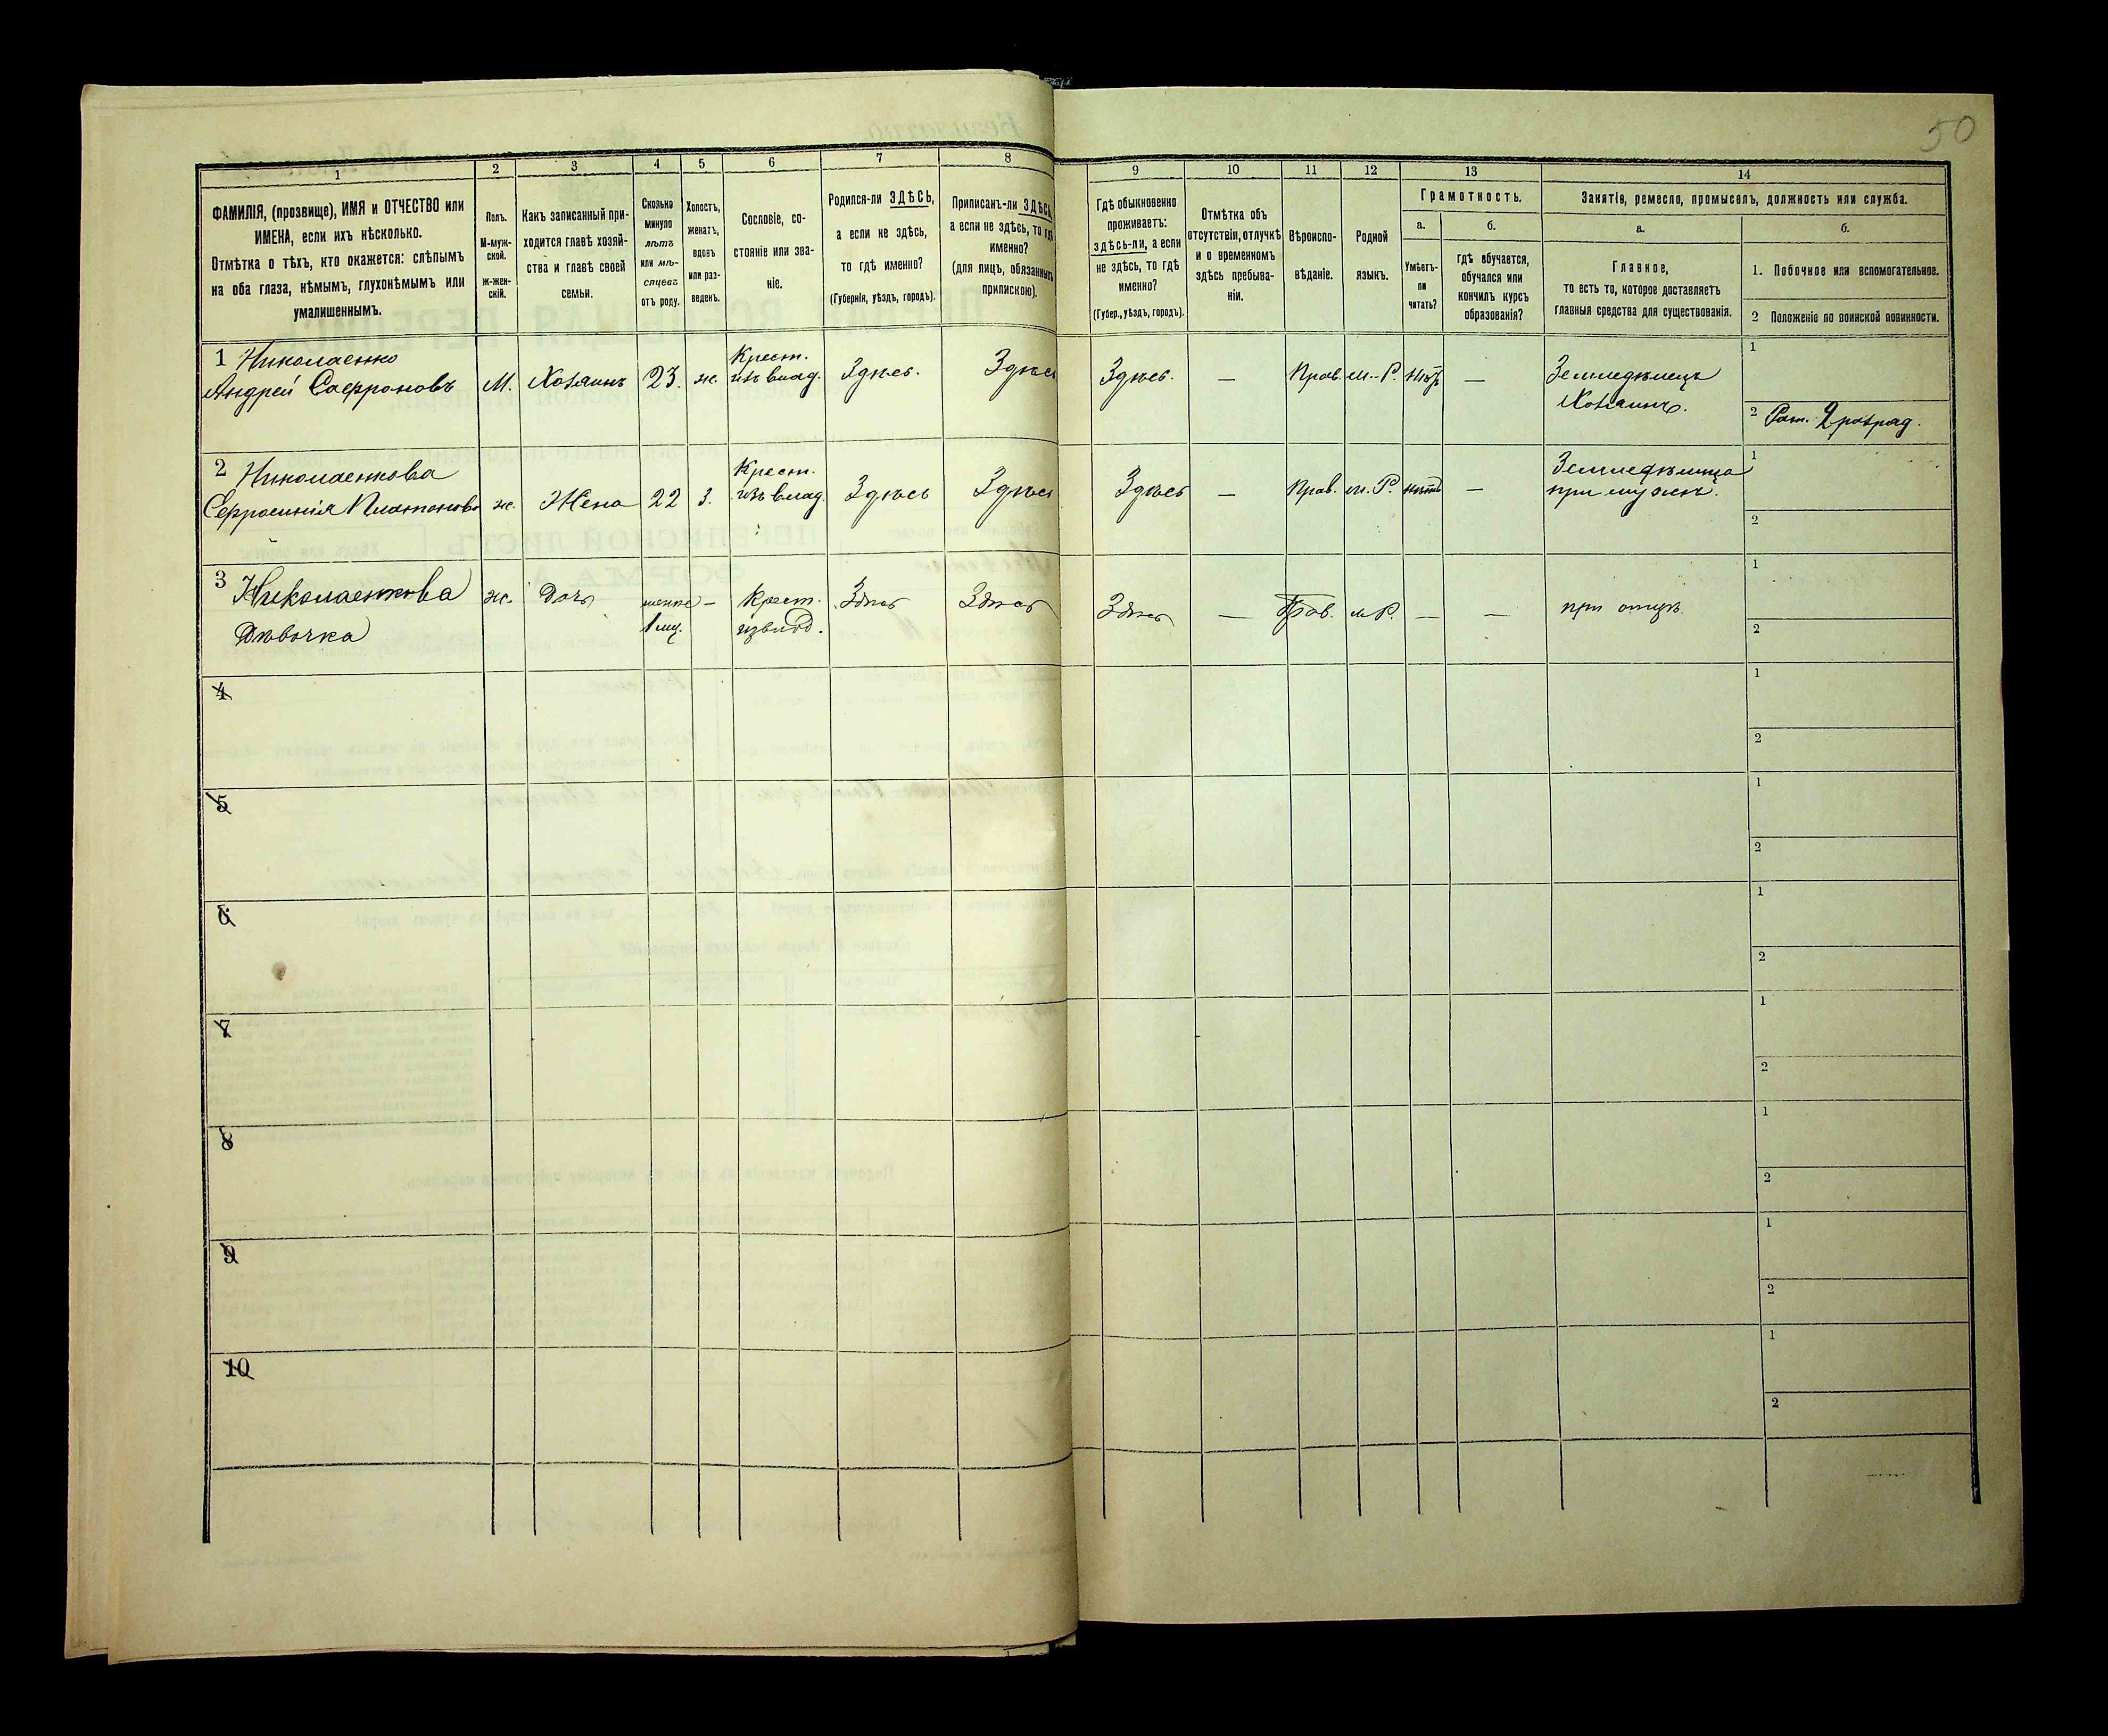 50
1
2
3
4
5
6
7
8
9
10
11
12
13
14
ФАМИЛІЯ, (прозвище), ИМЯ и ОТЧЕСТВО или
ИМЕНА, если ихъ нѣсколько.
Отмѣтка о тѣхъ, кто окажется: слѣпымъ
на оба глаза, нѣмымъ, глухонѣмымъ или
умалишеннымъ.
Полъ.
М-муж-
ской.
ж-жен-
скій.
Какъ записанный при-
ходится главѣ хозяй-
ства и главѣ своей
семьи.
Сколько
минуло
лѣтъ
или мѣ-
сяцевъ
отъ роду.
Холостъ,
женатъ,
вдовъ
или раз-
веденъ.
Сословіе, со-
стояніе или зва-
ніе.
Родился-ли ЗДѢСЬ,
а если не здѣсь,
то гдѣ именно?
(Губернія, уѣздъ, городъ).
Приписанъ-ли ЗДѢСЬ,
а если не здѣсь, то гдѣ
именно?
(для лицъ, обязанныхъ
припискою).
Гдѣ обыкновенно
проживаетъ:
здѣсь-ли, а если
не здѣсь, то гдѣ
именно?
(Губер., уѣздъ, городъ).
Отмѣтка объ
отсутствіи, отлучкѣ
и о временномъ
здѣсь пребыва-
ніи.
Вѣроиспо-
вѣданіе.
Родной
языкъ.
Грамотность.
а.
б.
Умѣетъ-
ли
читать?
гдѣ обучается,
обучался или
кончилъ курсъ
образованія?
Занятіе, ремесло, промыселъ, должность или служба.
а.
б.
Главное,
то есть то, которое доставляетъ
главныя средства для существованія.
1. Побочное или вспомогательное.
2 Положеніе по воинской повинности.
1 Николаенко
Андрей Сафроновъ
М.
Хозяинъ
23.
ж.
Крест.
изъ влад.
Здѣсь.
Здѣсь
Здѣсь.
—
Прав.
м.-Р.
нѣтъ
—
Земледѣлецъ
Хозяинъ.
1
2 Рат. 2 разряд.
2 Николаенкова
Ефросинія Платонова
ж.
Жена
22
З.
Крест.
изъ влад.
Здѣсь
Здѣсь
Здѣсь
—
Прав.
м. Р.
нѣтъ
—
Земледѣлица
при мужѣ.
1
2
3 Николаенкова
Дѣвочка
ж.
Дочь
менѣе
1 мц.
—
Крест.
изъ влад.
Здѣсь
Здѣсь
Здѣсь
—
Прав.
м Р.
—
—
при отцѣ.
1
2
4
1
2
5
1
2
6
1
2
7
1
2
8
1
2
9
1
2
10
1
2